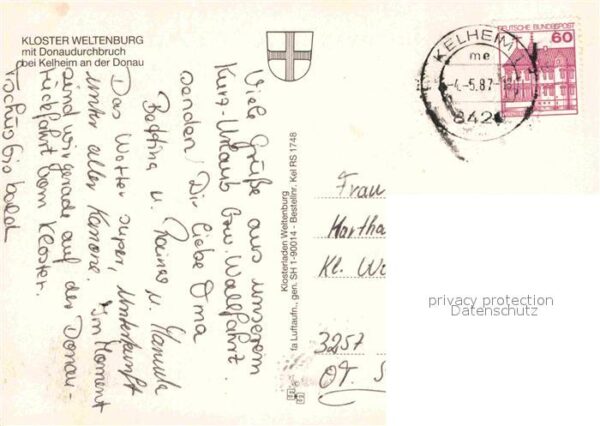 KLOSTER WELTENBURG
mit Donaudurchbruch
bei Kelheim an der Donau
Viele Grüße aus unserem
Kurz-Urlaub bzw. Wallfahrt.
senden Dir liebe Oma
Bettina u. Rainer u. Manuela
Das Wetter super, Unterkunft
unter aller Kanone. Im Moment
sind wir gerade auf der Donau-
rückfahrt vom Kloster.
Tschüs bis bald
Klosterladen Weltenburg
fa Luftaufn., gen. SH 1-90014 - Bestellnr. Kel RS 1748
DEUTSCHE BUNDESPOST
60
KELHEIM
me
-4.-5.87-
842
Frau
Martha
Kl.
3257
OT. S
privacy protection
Datenschutz